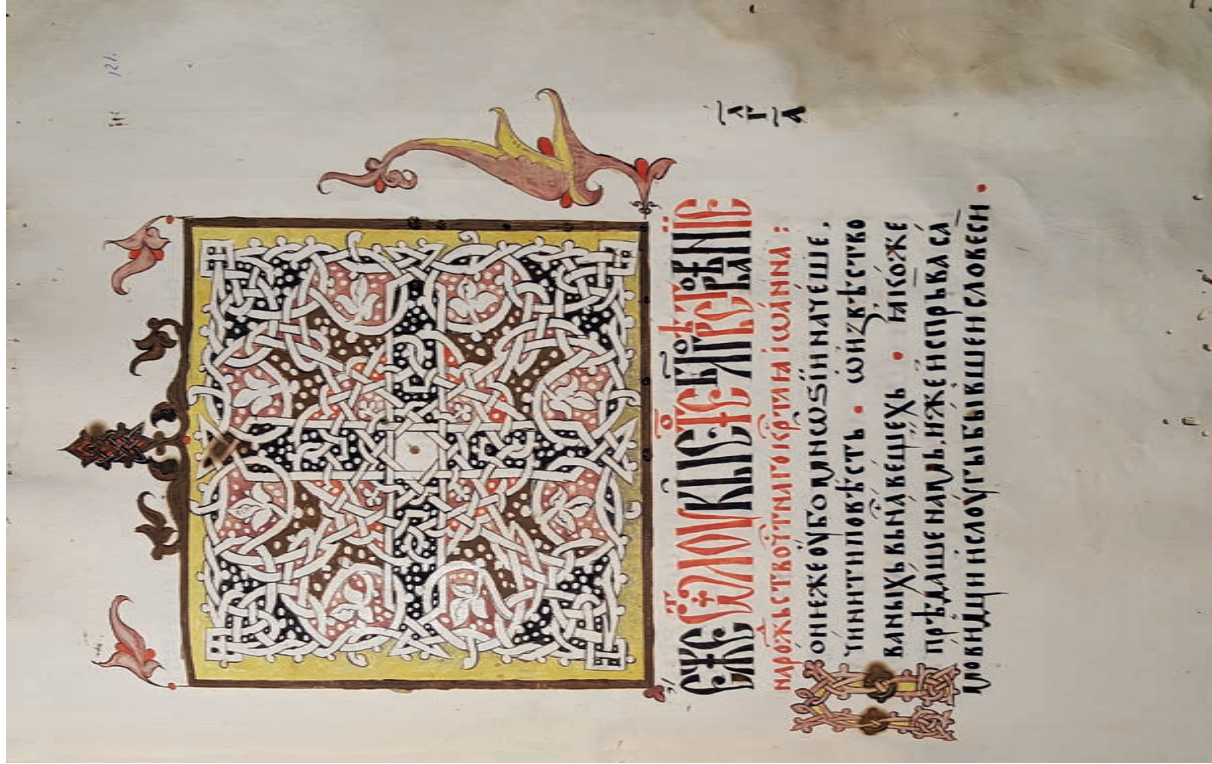 121
ЄЖЕ Ѿ ЛОУКЫ
на рож҃ьство ч҃тнаго кр҃тлꙗ іѡа́нна :
Понеже оубо мнѡѕіи наче́ше ,
чинити повѣсть • ѡ҆ и҆звѣство
ваныхь вь на́ вещехь • ꙗ҆коже
прѣдаше намь, иже и҆спрьва са́
мовидци и҆ слоугы бывшеи словеси •